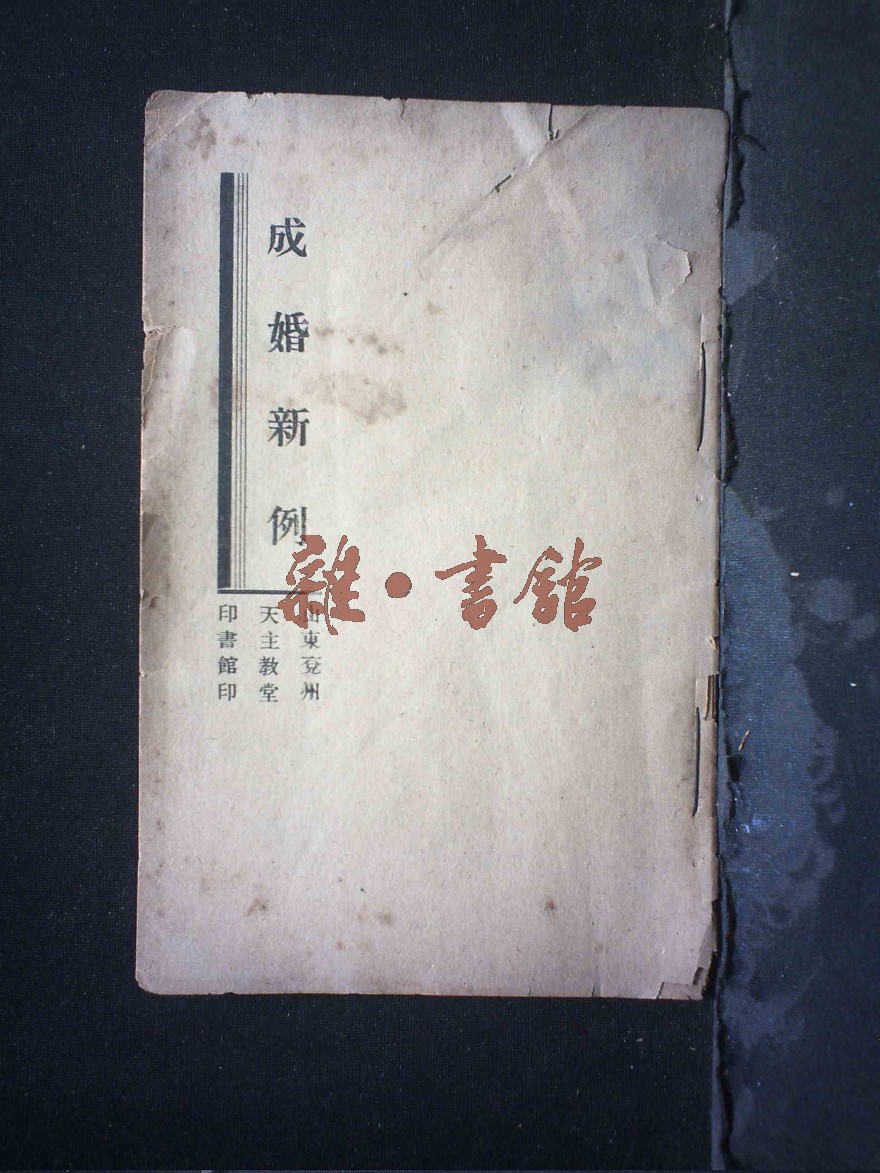 成婚新例
山東兗州
天主教堂
印書館印
雜·書館